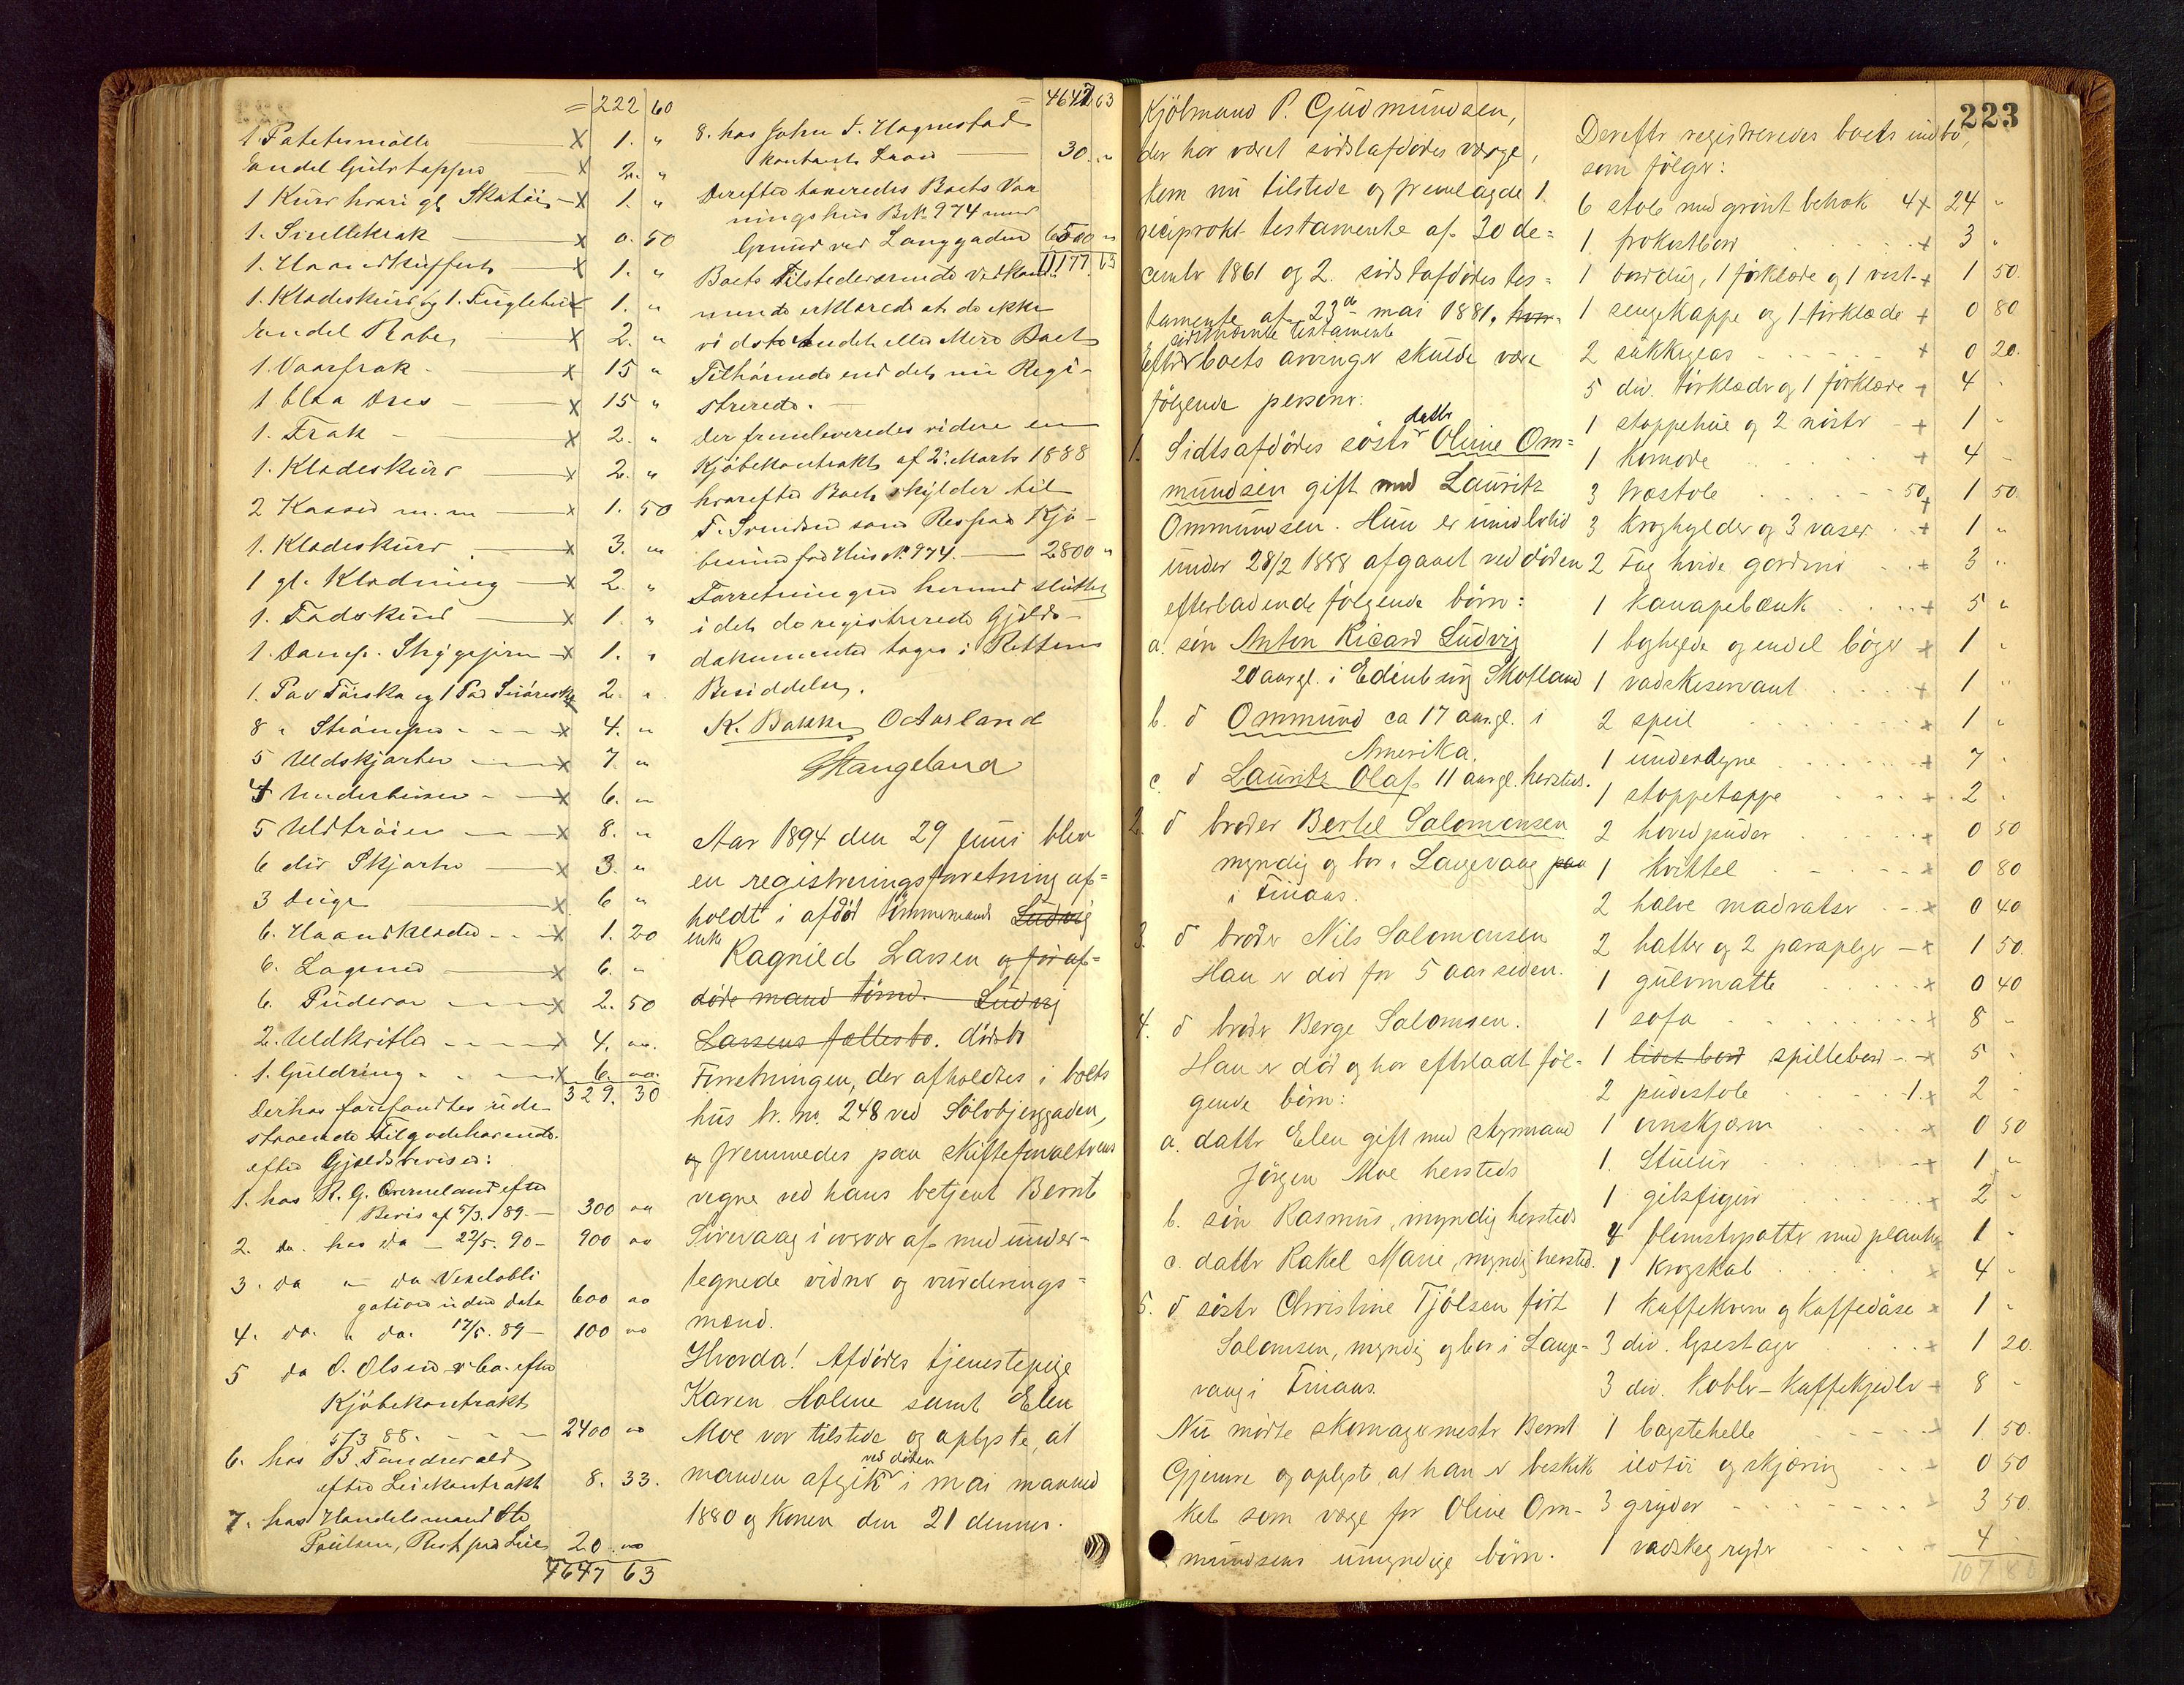 = 222 60
1 Potetesmølle x 1. "
Endel Gulvtæpper x 2. "
1 Kurv hvori gl Skotøi x 1. "
1. Sirellekrak x 0. 50
1. Haandkuffert x 1. "
1. Klædeskurv og 1. Fuglebur x 1. "
Endel Reber x 2. "
1. Vaarfrak x 15 "
1 blaa Dres x 15 "
1. Frak x 2. "
1. Klædeskurv x 2. "
2 Kasser m. m x 1. 50
1. Klædeskurv x 3. "
1 gl. Klædning x 2. "
1. Fadskurv x 1. "
1. Damp. Strygejern x 1. "
1. Par Tørsko og 1 Par Snøresko x 2. "
8 " Strømper x 4. "
5 Uldskjorter x 7. "
4 Underbuxer x 6. "
5 Uldtrøier x 8. "
6 div Skjorter x 3. "
3 Duge x 6 "
6. Haandklæder x 1. 20
6. Lagener x 6. "
6. Pudevar x 2. 50
2. Uldkvitler x 4. oo.
1. Guldring x 6. oo.
329. 30
Derhos forefandtes ude-
staaende Tilgodehavende
efter Gjældsbeviser:
1. hos R. G. Overneland efter
Bevis af 5/3. 89. — 300 oo
2. da. hos da — 22/5. 90 — 900 oo
3. da " da Vexelobli
gation uden data 600 oo
4. da. " da. 17/5. 89 — 100 oo
5 da O. Olsen & Co. efter
Kjøbekontrakt
5/3 88. 2400 oo
6. hos B. Tandervald
efter Leiekontrakt 8. 33.
7. hos Handelsmand Ole
Paulsen, Rest paa Leie 20. oo
4647 63
= 4647 63
8. hos John T. Hognestad
kontant Laan — 30. "
Derefter taxeredes Boets Vaa
ningshus Br. 974 med
Grund ved Langgaden 6500 "
11177 63
Boets Tilstedeværende vedkom-
mende erklærede at de ikke
vidste Andet eller Mere Boet
Tilhørende end det nu Regi-
strerede. —
Der fremleveredes videre en
Kjøbekontrakt af 2. Marts 1888
hvorefter Boet skylder til
T. Svendsen som Rest paa Kjø-
besum for Hus No. 974. — 2800 "
Forretningen hermed sluttet
i det de registrerede Gjælds-
dokumenter toges i Rettens
Besiddelse.
K. Bakke O Aarland
G Hangeland
Aar 1894 den 29 Juni blev
en registreringsforretning af=
holdt i afdød tømmermand Ludvig
enke
Ragnild Larsen og før af=
døde mand tømd. Ludvig
Larsens fællesbo. dødsbo
Forretningen, der afholdtes i boets
hus br. no. 248 ved Sølvbjerggaden,
og fremmedes paa skifteforvalterens
vegne ved hans betjent Bernt
Sirevaag i overvær af med under-
tegnede vidner og vurderings=
mænd.
Hvorda! Afdødes tjenestepige
Karen Holme samt Elen
Moe var tilstede og oplyste, at
ved døden
manden afgik i mai maaned
1880 og konen den 21 dennes.
223
Kjølmand P. Gudmundsen,
der har været sidstafdødes værge,
kom nu tilstede og fremlagde 1.
reciprokt testamente af 30 de=
cember 1861 og 2. sidstafdødes tes=
tamente af 23de mai 1881, hvor-
sidstnævnte testamente
efter boets arvinger skulde være
følgende personer:
datter
1. Sidtsafdødes søster Oline Om=
mundsen gift med Lauritz
Ommundsen. Hun er imidlertid
under 28/2 1888 afgaaet ved døden
efterladende følgende børn:
a. søn Anton Ricard Ludvig
20 aar gl. i Edinburg Skotland
b. d Ommund ca 17 aar gl. i
Amerika.
c. d Lauritz Olaf 11 aar gl. hersteds.
2. d broder Bertel Salomonsen
myndig og bor i Langevaag paa
i Finaas.
3. d broder Nils Salomonsen
Han er død for 5 aar siden.
4. d broder Berge Salomsen.
Han er død og har efterladt føl-
gende børn:
a. datter Elen gift med styrmand
Jørgen Moe hersteds
b. søn Rasmus, myndig hersteds
c. datter Rakel Marie, myndig hersted.
5. d søster Christine Tjølsen født
Salomsen, myndig og bor i Lange-
vaag i Finaas.
Nu mødte skomagermester Bernt
Gjemre og oplyste, at han er beskik
ket som værge for Oline Om-
mundsens umyndige børn.
Derefter registreredes boets indbo,
som følger:
6 stole med grønt betræk 4 x 24 "
1 frokostbord + 3 "
1 borddug, 1 forklæde og 1 vest + 1 50.
1 sengekappe og 1 tørklæde + 0 80
2 sukkerglas + 0 20.
5 div. tørklæder og 1 forklæde + 4 "
1 stoppehue og 2 nøster + 1 "
1 komode + 4 "
3 træstole 50 + 1 50.
3 kroghylder og 3 vaser + 1 "
2 Fag hvide gardiner + 3 "
1 kanapebænk + 5 "
1 boghylde og endel bøger + 1 "
1 vadskeservant + 1 "
2 speil + 1 "
1 underdyne + 7 "
1 stoppetæppe + 2 "
2 hovedpuder + 0 50
1 kvittel x 0 80
2 halve madratser x 0 40
2 hatter og 2 paraplyer x 1 50.
1 gulvmatte x 0 40
1 sofa x 8 "
1 lidet bord spillebord x 5 "
2 pudestole 1. x 2 "
1 ovnskjærm x 0 50
1. Stueur + 1 "
1 gibsfigur x 2 "
4 blomsterpotter med planter 1 "
1 krogskab x 4 "
1 kaffekværn og kaffedåse x 1 "
3 div. lysestager + 1 20.
3 div. kobber-kaffekjedler + 8 "
1 bagstehelle 1 50.
ildtøi og skjæring 0 50
3 gryder 3 50.
1 vadskegryde 4 "
107 80